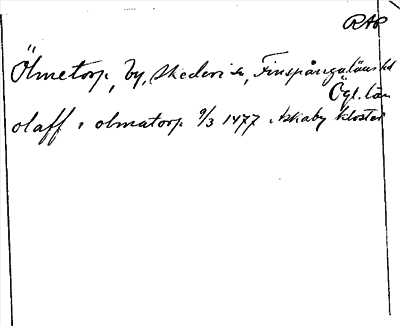 RAP
Ölmetorp, by, Skedevi sn, Finspångaläns hd
Ögl. län
olaff i olmatorp 9/3 1477 Askaby kloster